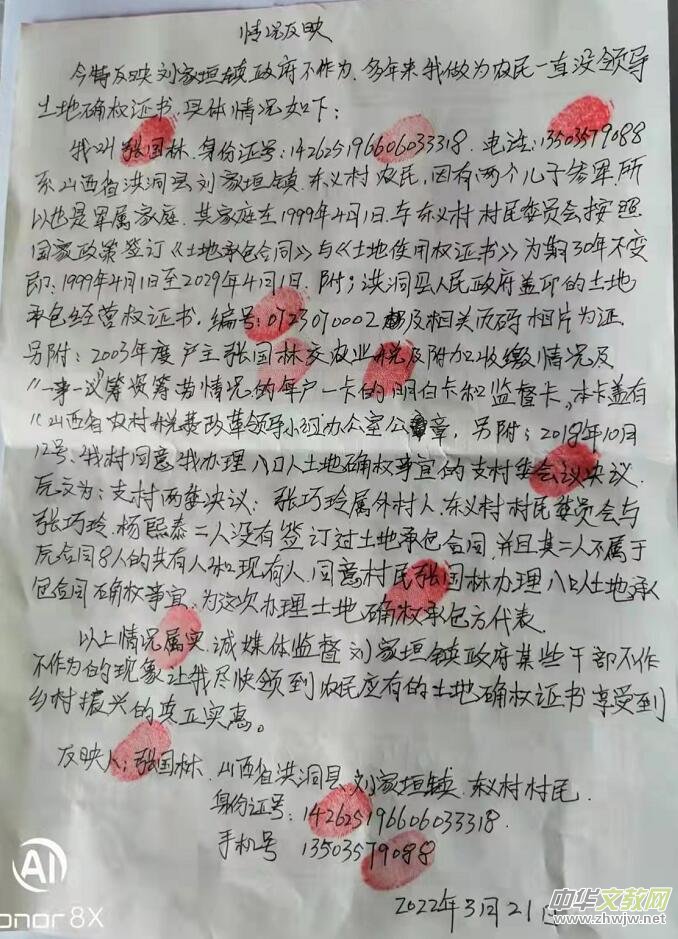 情况反映
今特反映刘家垣镇政府不作为,多年来我做为农民一直没领导
土地确权证书.具体情况如下:
我叫张国林.身份证号:142625196606033318.电话:13503579088
系山西省洪洞县刘家垣镇.东义村农民,因有两个儿子参军.所
以也是军属家庭.其家庭在1999年4月1日.与东义村村民委员会按照
国家政策签订《土地承包合同》与《土地使用权证书》为期30年不变
即:1999年4月1日至2029年4月1日.附;洪洞县人民政府盖印的土地
承包经营权证书.编号:0723070002及相关页码相片为证.
另附:2003年度户主张国林交农业税及附加收缴情况及
"一事一议"筹资筹劳情况的每户一卡的明白卡和监督卡,本卡盖有
"山西省农村税费改革领导小组办公室公章章,另附:2018年10月
12号、我村同意我办理八口人土地确权事宜的支村委会议决议.
原文为:支村两委决议:张巧玲属外村人.东义村村民委员会与
张巧玲.杨熙泰二人没有签订过土地承包合同,并且其二人不属于
原合同8人的共有人和现有人.同意村民张国林办理八口人土地承
包合同确权事宜,为这次办理土地确权承包方代表.
以上情况属实.诚媒体监督刘家垣镇政府某些干部不作
不作为的现象让我尽快领到农民应有的土地确权证书享受到
乡村振兴的真正实惠。
反映人:张国林.山西省洪洞县刘家垣镇.东义村村民.
身份证号:142625196606033318.
手机号 13503579088
2022年3月21日
AI
onor 8X
中华文教网
www.zhwjw.net